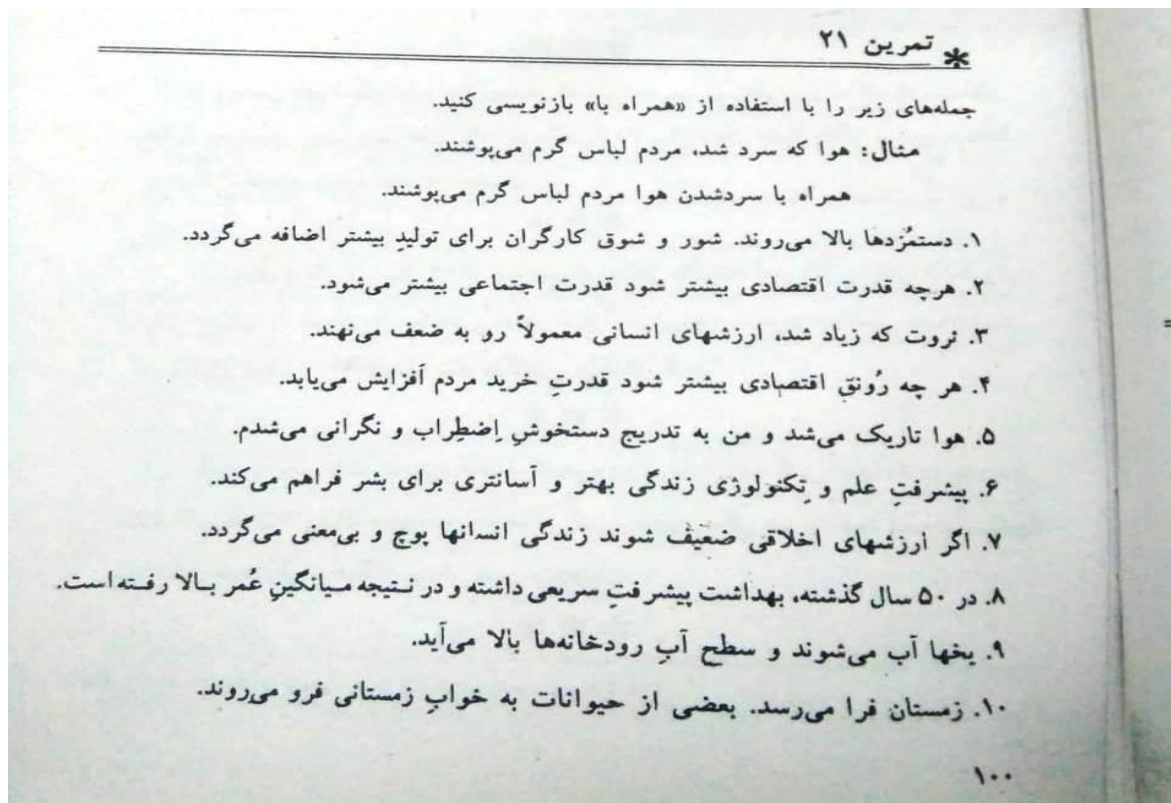 * تمرین ۲۱
جمله‌های زیر را با استفاده از «همراه با» بازنویسی کنید.
مثال: هوا که سرد شد، مردم لباس گرم می‌پوشند.
همراه با سردشدن هوا مردم لباس گرم می‌پوشند.
۱. دستمُزدها بالا می‌روند. شور و شوق کارگران برای تولیدِ بیشتر اضافه می‌گردد.
۲. هرچه قدرت اقتصادی بیشتر شود قدرت اجتماعی بیشتر می‌شود.
۳. ثروت که زیاد شد، ارزشهای انسانی معمولاً رو به ضعف می‌نهند.
۴. هر چه رُونقِ اقتصادی بیشتر شود قدرتِ خرید مردم اَفزایش می‌یابد.
۵. هوا تاریک می‌شد و من به تدریج دستخوشِ اِضطِراب و نگرانی می‌شدم.
۶. پیشرفتِ علم و تِکنولوژی زندگی بهتر و آسانتری برای بشر فراهم می‌کند.
۷. اگر ارزشهای اخلاقی ضعیف شوند زندگی انسانها پوچ و بی‌معنی می‌گردد.
۸. در ۵۰ سال گذشته، بهداشت پیشرفتِ سریعی داشته و در نتیجه میانگینِ عُمر بالا رفته است.
۹. یخها آب می‌شوند و سطح آبِ رودخانه‌ها بالا می‌آید.
۱۰. زمستان فرا می‌رسد. بعضی از حیوانات به خوابِ زمستانی فرو می‌روند.
۱۰۰